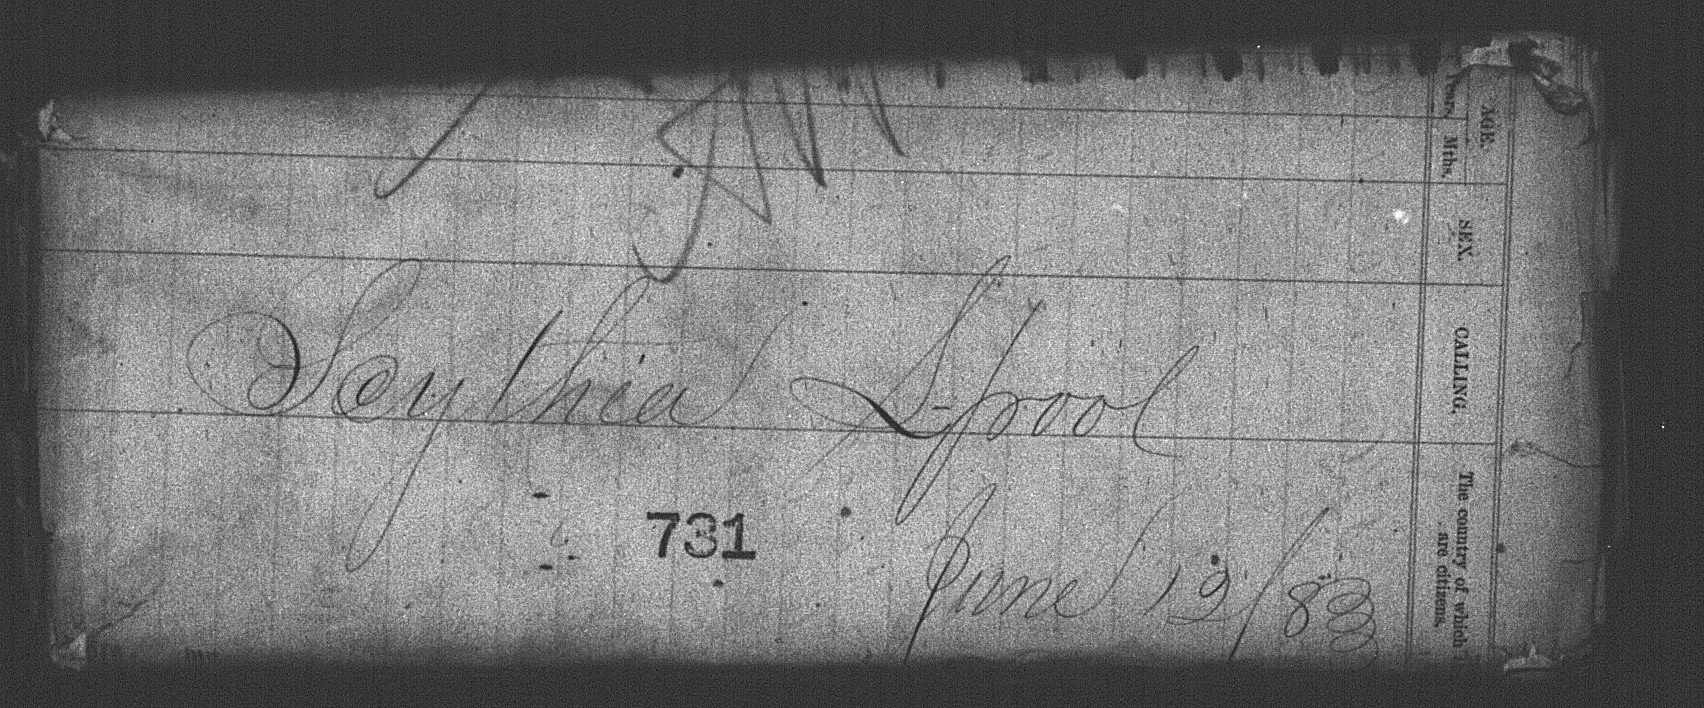 Scythia L-pool
731
June 12/83
AGE.
Years. Mths.
SEX.
CALLING.
The country of which
are citizens.